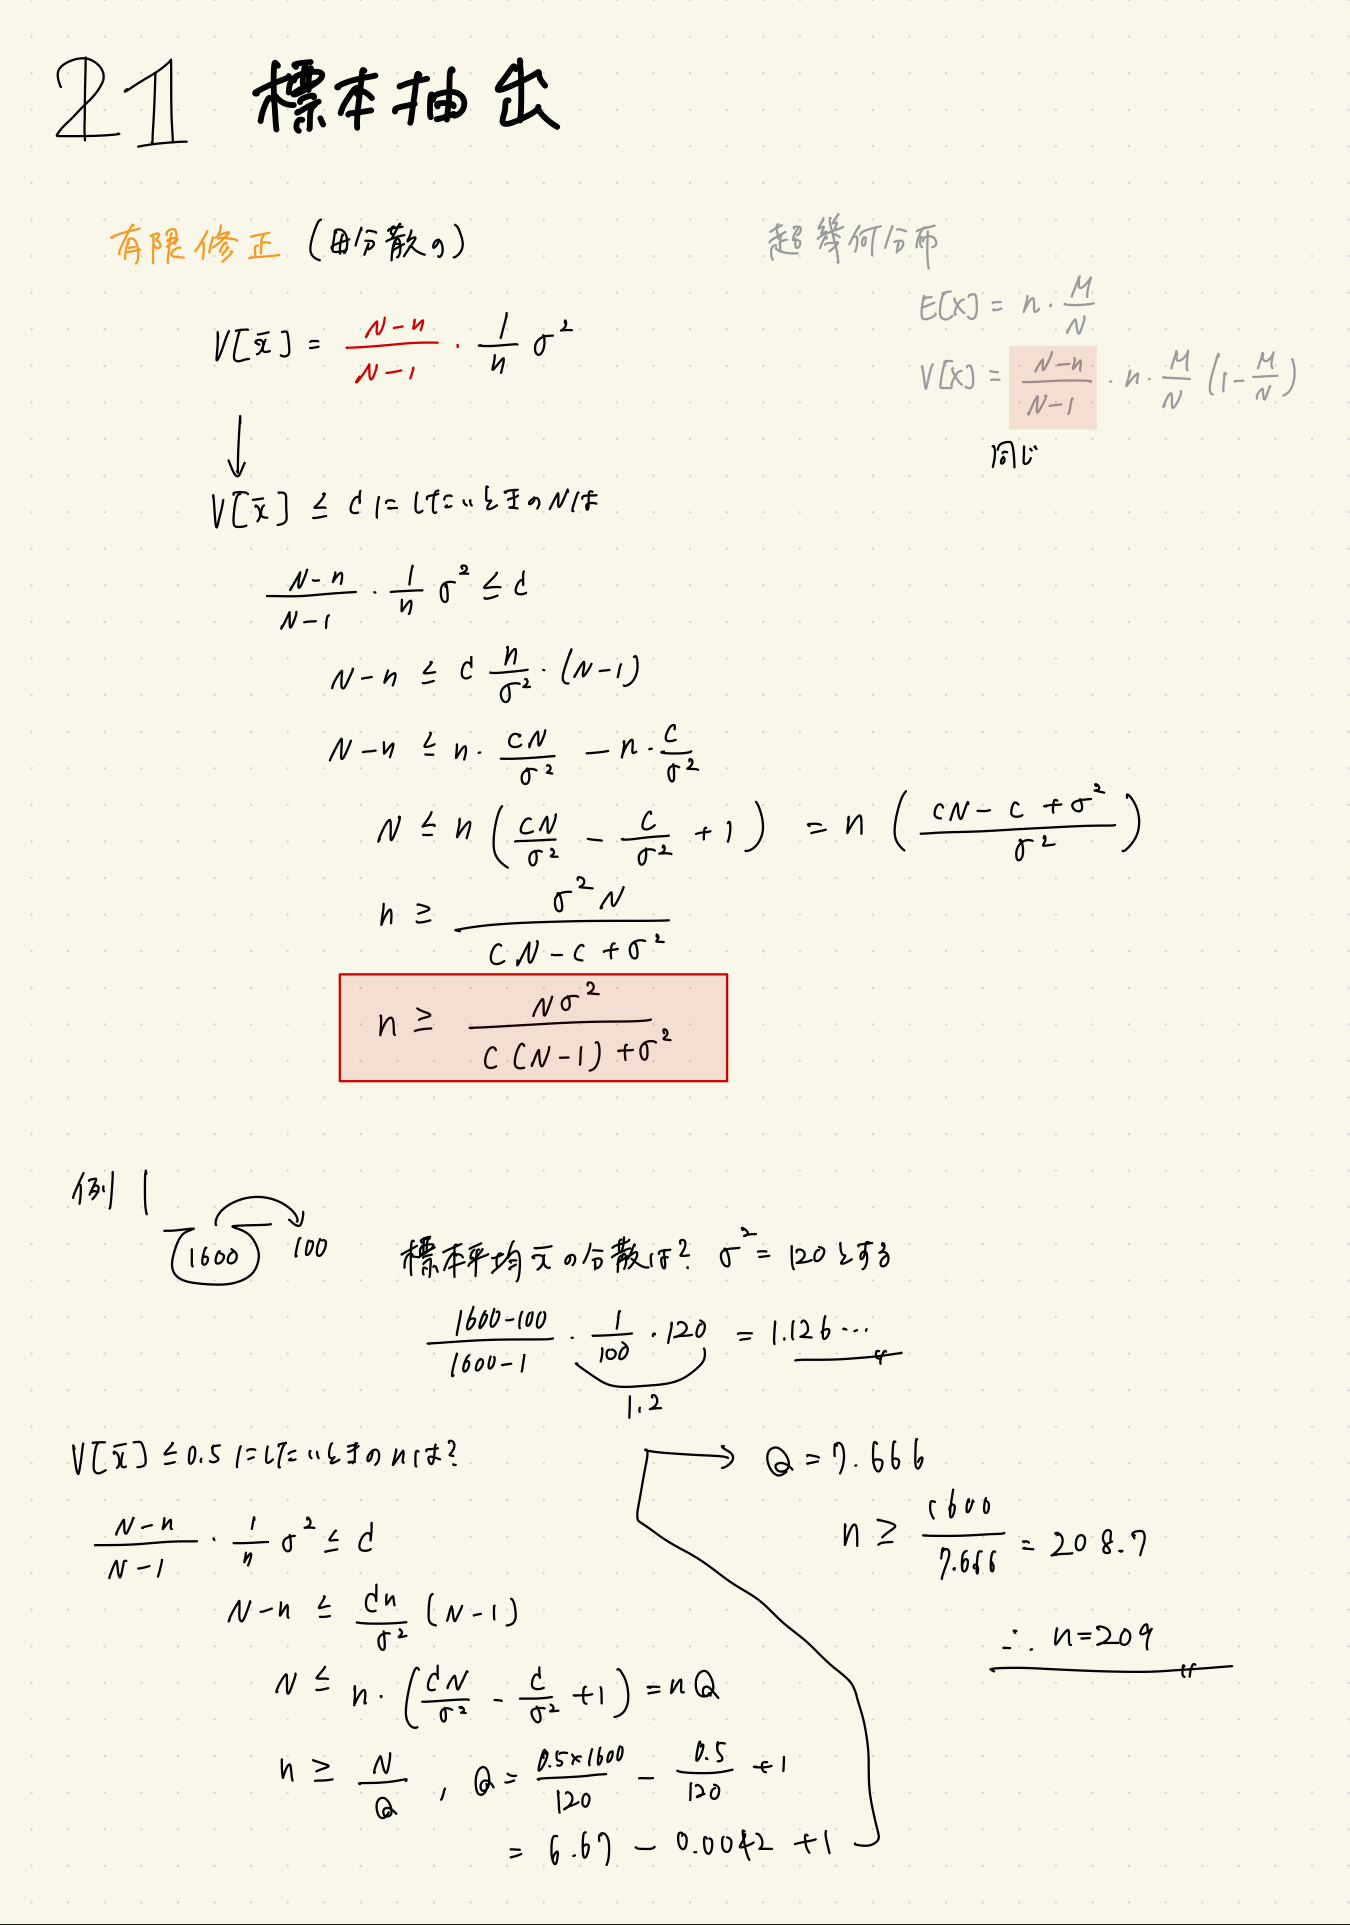 21 標本抽出
有限修正 (母分散の)
V[x̄] = (N-n)/(N-1) · 1/n σ²
超幾何分布
E[X] = n · M/N
V[X] = (N-n)/(N-1) · n · M/N (1 - M/N)
同じ
↓
V[x̄] ≤ c にしたいときのNは
(N-n)/(N-1) · 1/n σ² ≤ c
N-n ≤ c n/σ² · (N-1)
N-n ≤ n · cN/σ² - n · c/σ²
N ≤ n (cN/σ² - c/σ² + 1) = n ((cN - c + σ²)/σ²)
n ≥ σ²N/(cN - c + σ²)
n ≥ Nσ²/(c(N-1) + σ²)
例1
1600 100
標本平均 x̄ の分散は? σ² = 120とする
(1600-100)/(1600-1) · 1/100 · 120 = 1.126…
1.2
V[x̄] ≤ 0.5 にしたいときのnは?
(N-n)/(N-1) · 1/n σ² ≤ d
N-n ≤ dn/σ² (N-1)
N ≤ n · (dN/σ² - d/σ² + 1) = nQ
n ≥ N/Q , Q = (0.5×1600)/120 - 0.5/120 + 1
= 6.67 - 0.0042 + 1
→ Q = 7.666
n ≥ 1600/7.666 = 208.7
∴ n = 209